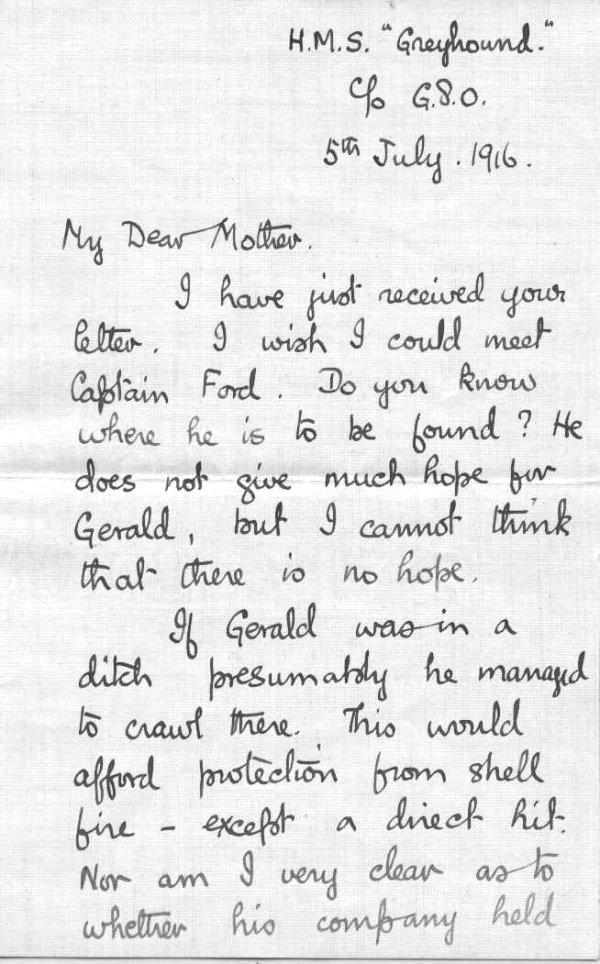 H.M.S. "Greyhound."
c/o G.P.O.
5th July. 1916.
My Dear Mother.
I have just received your
letter. I wish I could meet
Captain Ford. Do you know
where he is to be found? He
does not give much hope for
Gerald, but I cannot think
that there is no hope.
If Gerald was in a
ditch presumably he managed
to crawl there. This would
afford protection from shell
fire - except a direct hit.
Nor am I very clear as to
whether his company held